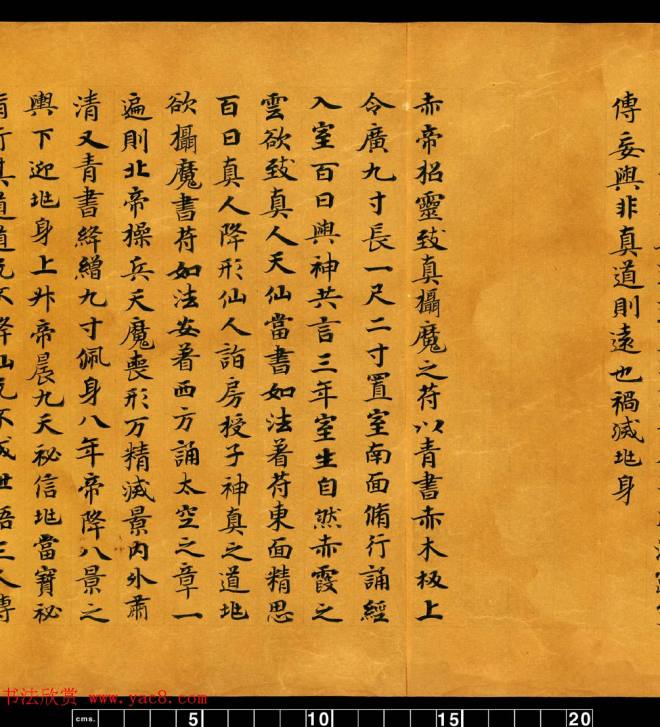 傳妄與非真道則遠也禍滅地身
赤帝招靈致真攝魔之符以青書赤木板上
令廣九寸長一尺二寸置室南面脩行誦經
入室百日與神共言三年室生自然赤霞之
雲欲致真人天仙當書如法著符東面精思
百日真人降形仙人詣房授子神真之道地
欲攝魔書符如法安著西方誦太空之章一
遍則北帝操兵天魔喪形万精滅景內外肅
清又青書絳繒九寸佩身八年帝降八景之
輿下迎地身上升帝晨九天祕信地當寶祕
书法欣赏 www.yac8.com
cms. 5 10 15 20